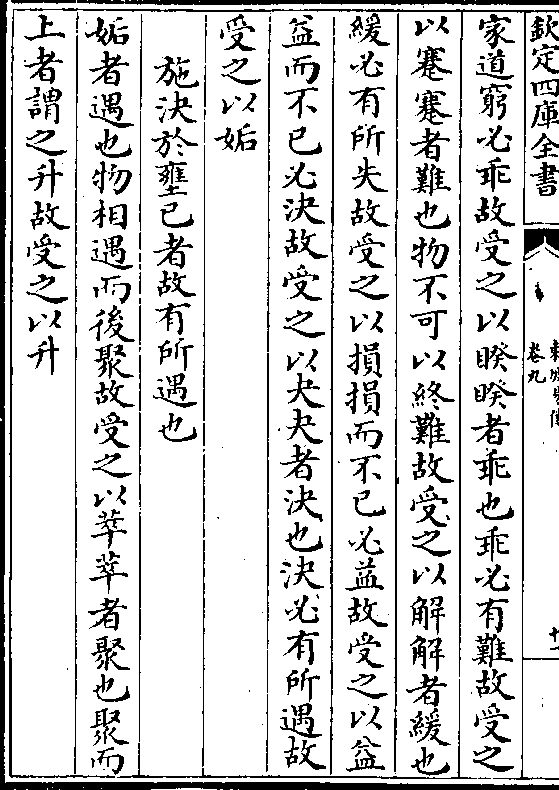 欽定四庫全書
卷九
家道窮必乖故受之以睽睽者乖也乖必有難故受之
以蹇蹇者難也物不可以終難故受之以解解者緩也
緩必有所失故受之以損損而不已必益故受之以益
益而不已必決故受之以夬夬者決也決必有所遇故
受之以姤
施決於壅已者故有所遇也
姤者遇也物相遇而後聚故受之以萃萃者聚也聚而
上者謂之升故受之以升